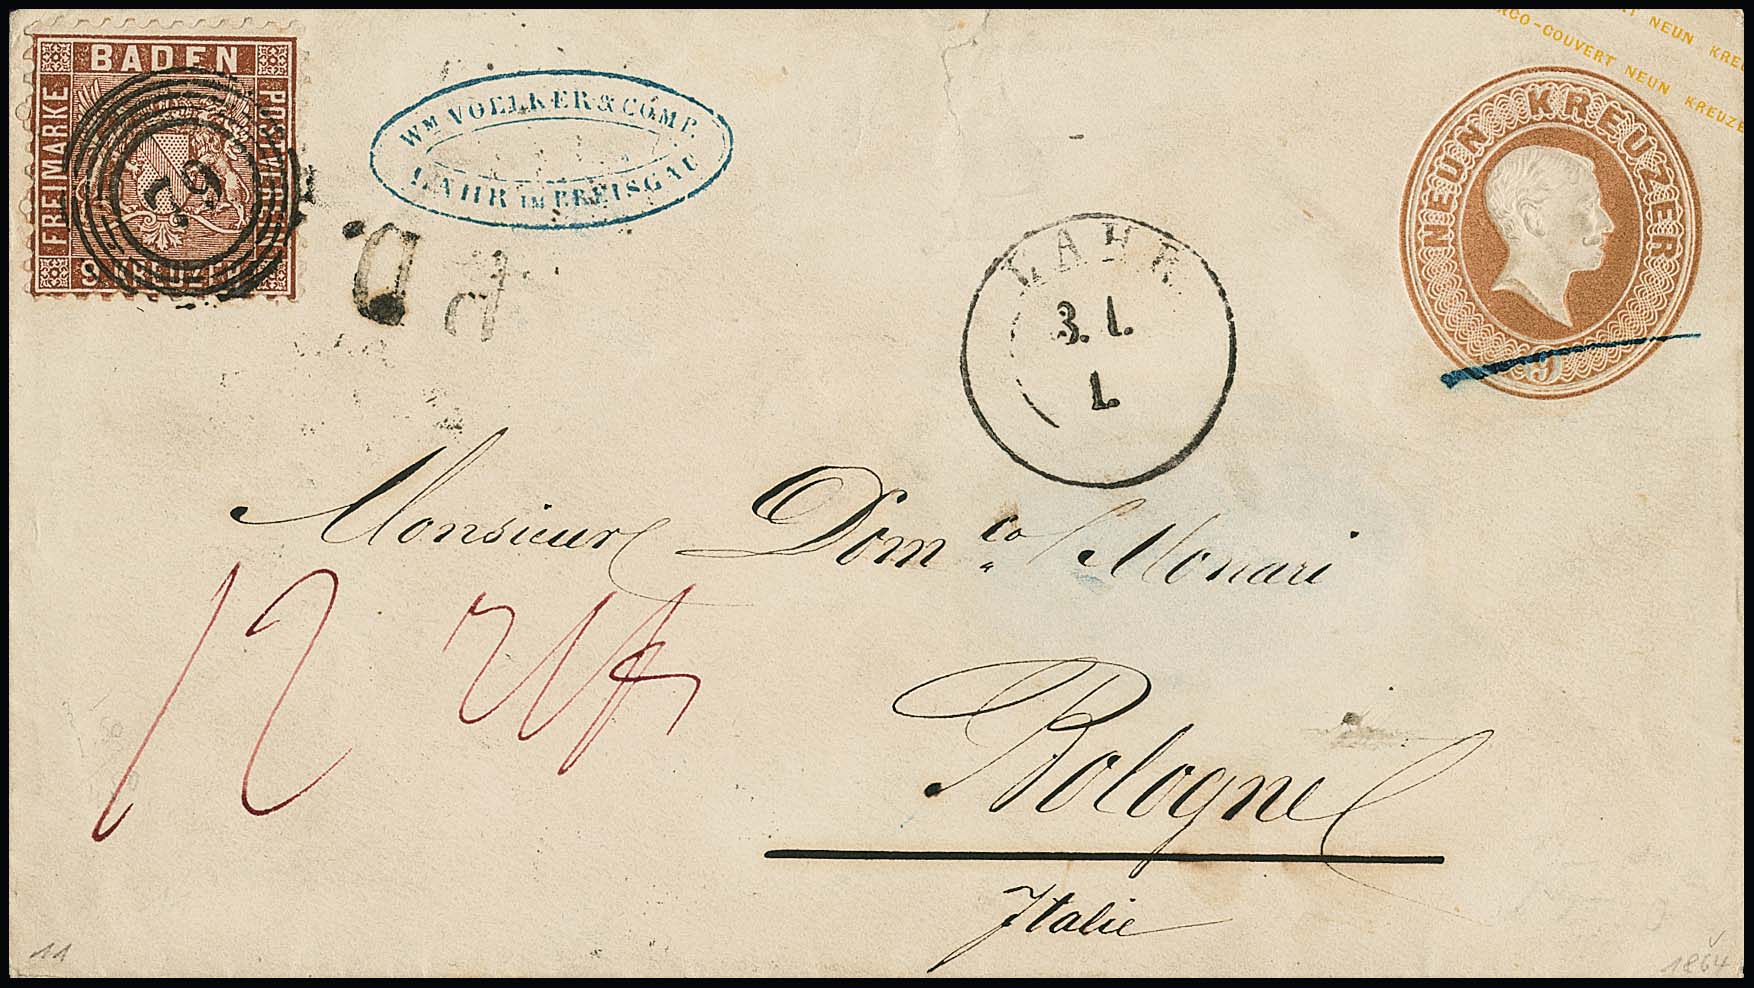 BADEN
FREIMARKE
POSTVEREIN
9 KREUZER
WM VOELKER & COMP.
LAHR IM BREISGAU
P.D.
LAHR
3. 1.
1.
NEUN KREUZER
9
NEUN KREU
RCO-COUVERT NEUN KREUZE
Monsieur Domco Monari
12
Bologne
Italie
11
1864